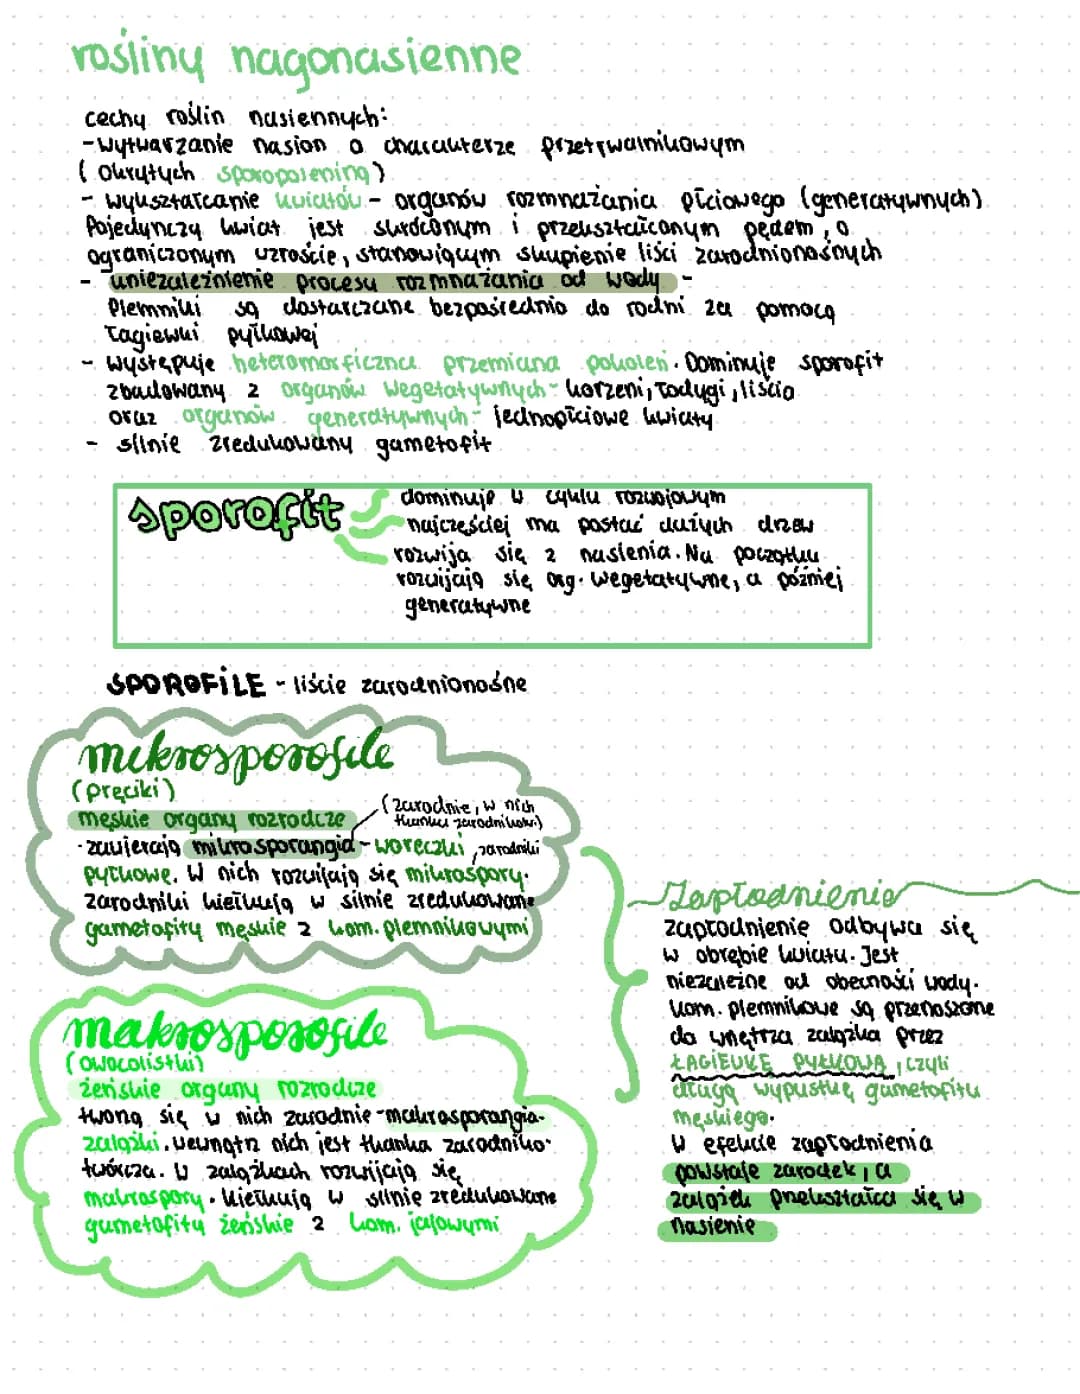 rośliny nagonasienne
cechy roślin nasiennych:
- wytwarzanie nasion o charakterze przetrwalnikowym
(okrytych sporopoleniną)
- wykształcanie kwiatów - organów rozmnażania płciowego (generatywnych)
Pojedynczy kwiat jest skróconym i przekształconym pędem, o
ograniczonym wzroście, stanowiącym skupienie liści zarodnionośnych
- uniezależnienie procesu rozmnażania od wody -
Plemniki są dostarczane bezpośrednio do rodni za pomocą
łagiewki pyłkowej
- występuje heteromorficzna przemiana pokoleń. Dominuje sporofit
zbudowany z organów wegetatywnych - korzeni, łodygi, liścia
oraz organów generatywnych - jednopłciowe kwiaty
- silnie zredukowany gametofit
sporofit
dominuje w cyklu rozwojowym
najczęściej ma postać dużych drzew
rozwija się z nasienia. Na początku
rozwijają się org. wegetatywne, a później
generatywne
SPOROFiLE - liście zarodnionośne
mikrosporofile
(pręciki)
męskie organy rozrodcze
(zarodnie, w nich
tkanka zarodnikotw.)
· zawierają mikrosporangia - woreczki , zarodniki
pyłkowe. W nich rozwijają się mikrospory.
zarodniki kiełkują w silnie zredukowane
gametofity męskie z kom. plemnikowymi
makrosporofile
(owocolistki)
żeńskie organy rozrodcze
tworzą się w nich zarodnie - makrosporangia -
zalążki. wewnątrz nich jest tkanka zarodniko-
twórcza. W zalążkach rozwijają się
makrospory. kiełkują w silnie zredukowane
gametofity żeńskie z kom. jajowymi
Zapłodnienie
zapłodnienie odbywa się
w obrębie kwiatu. Jest
niezależne od obecności wody.
kom. plemnikowe są przenoszone
do wnętrza zalążka przez
ŁAGIEWKĘ PYŁKOWĄ, czyli
długą wypustkę gametofitu
męskiego.
W efekcie zapłodnienia
powstaje zarodek, a
zalążek przekształca się w
nasienie